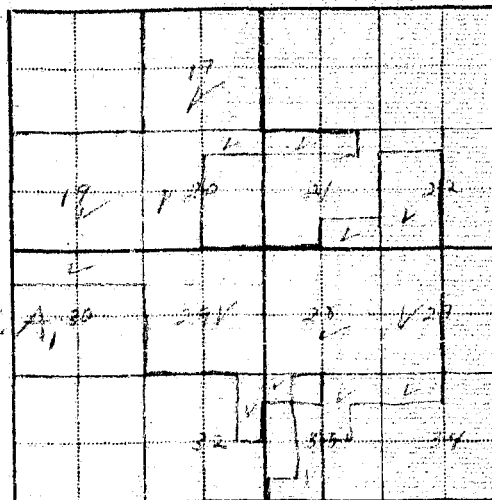 17 ✓
✓ ✓
19 ✓ 20 21 22
✓ ✓
✓
A, 30 29 ✓ 28 ✓ ✓ 27
✓ ✓ ✓ ✓
32 33 34